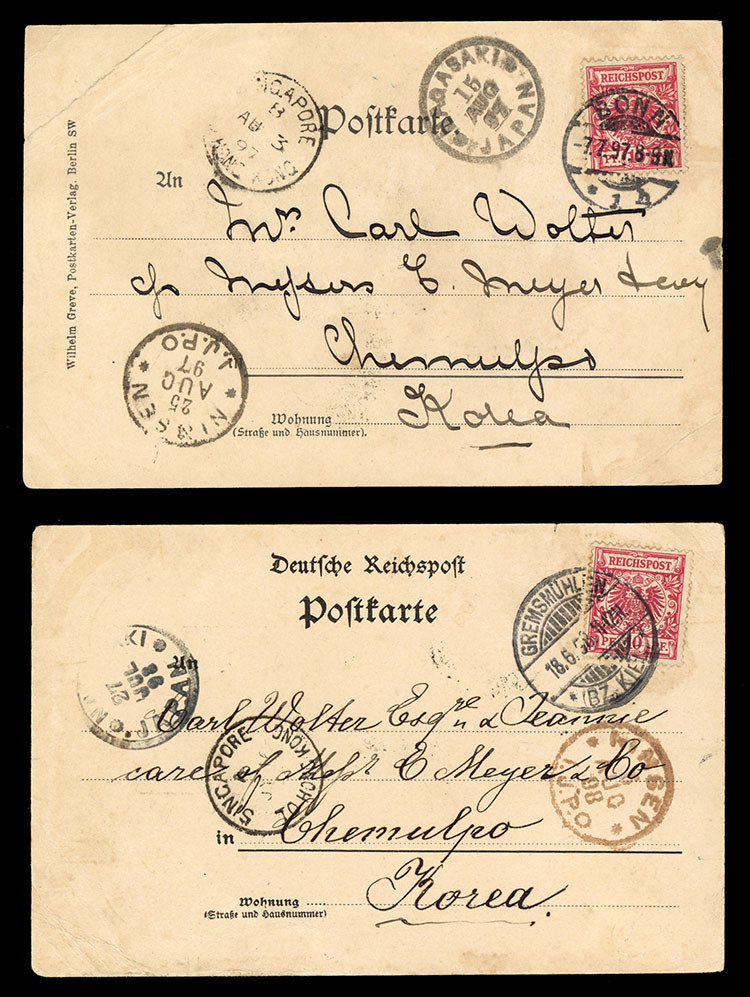 REICHSPOST
SINGAPORE
Postkarte.
NAGASAKI
JAPAN
15
AUG
97
BONN
7.7.97.8-9N.
An
Mr. Carl Wolter
c/o Messers E. Meyer & Coy
Chemulpo
Korea
NINSEN
I.J.P.O
25
AUG
97
Wohnung
(Straße und Hausnummer).
Wilhelm Greve, Postkarten-Verlag. Berlin SW
Deutsche Reichspost
Postkarte
REICHSPOST
10
GREMSMÜHLEN
18.6.98
(BZ. KIEL)
JAPAN
27
98
An
Carl Wolter Esqre & Jeannie
care of Messr E Meyer & Co
SINGAPORE
in Chemulpo
I.J.P.O
98
Korea.
Wohnung
(Straße und Hausnummer)